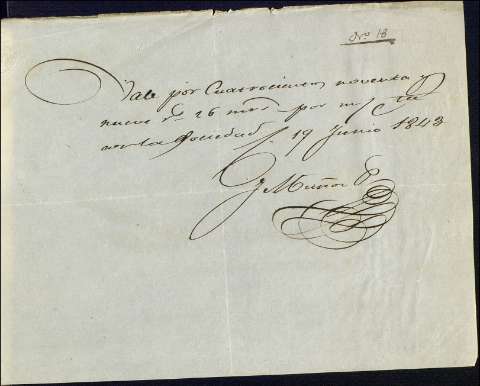 Nro. 18
Vale por Cuatrocientos noventa y
nueve rs. 26 mrs. por mi cta
con la Sociedad 19 Junio 1843
J Muñoz